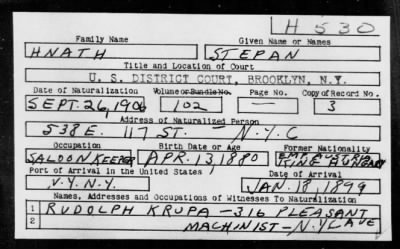 H 530
Family Name Given Name or Names
HNATH STEPAN
Title and Location of Court
U. S. DISTRICT COURT, BROOKLYN, N.Y.
Date of Naturalization Volume or Bundle No. Page No. Copy of Record No.
SEPT. 26, 1906 102 — 3
Address of Naturalized Person
538 E. 117 ST. — N.Y.C
Occupation Birth Date or Age Former Nationality
SALOON KEEPER APR. 13, 1880 EMP. AUSTRIA
KING HUNGARY
Port of Arrival in the United States Date of Arrival
N.Y. N.Y. JAN. 18, 1899
Names, Addresses and Occupations of Witnesses To Naturalization
1 RUDOLPH KRUPA — 316 PLEASANT
2 MACHINIST — N.Y.C AVE